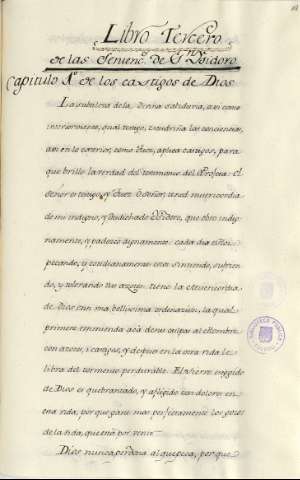 Libro Tercero
de las Sentenc.s de S.n Ysidoro
Capitulo 1.o de los castigos de Dios
La subtileza de la Divina sabiduria, asi como
interiormente, qual testigo, escudriña las conciencias,
asi en lo exterior, como Juez, aplica castigos, para
que brille la verdad del testimonio del Profeta: El
Señor es testigo, y Juez. O Señor, tened misericordia
de mi indigno, y desdichado Ysidoro, que obro indig
namente, y padezco dignamente: cada dia estoi
pecando, y cotidianamente estoi sintiendo, sufrien
do, y tolerando tus azotes: tiene la Misericordia
de Dios una bellisima ordenacion, la qual
primero enmienda acà de sus culpas al Hombre
con azotes, i castigos, y despues en la otra vida le
libra del tormento perdurable. El siervo escogido
de Dios es quebrantado, y afligido con dolores en
esta vida, porque gane mas perfectamente los gozos
de la vida, que está por venir.
Dios nunca perdona al que peca, porque